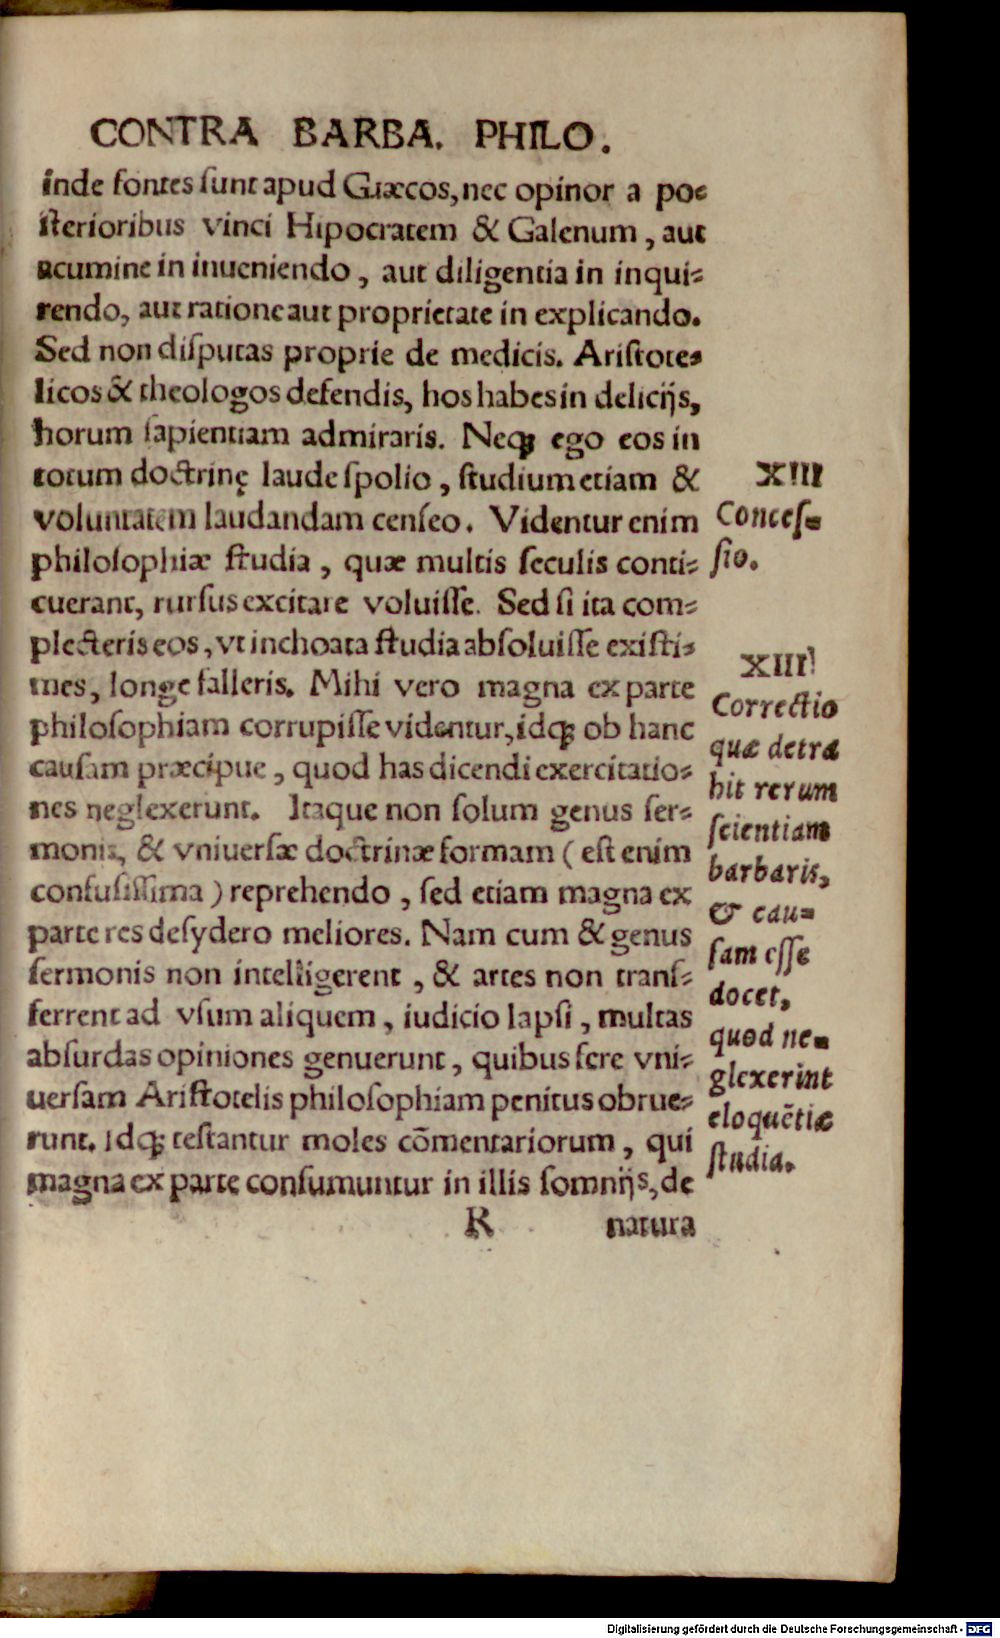 CONTRA BARBA. PHILO.
inde fontes ſunt apud Græcos, nec opinor a po⸗
ſterioribus vinci Hipocratem & Galenum, aut
acumine in inueniendo, aut diligentia in inqui⸗
rendo, aut ratione aut proprietate in explicando.
Sed non diſputas proprie de medicis. Ariſtote⸗
licos & theologos defendis, hos habes in delicijs,
horum ſapientiam admiraris. Neqꝫ ego eos in
totum doctrinę laude ſpolio, ſtudium etiam &
voluntatem laudandam cenſeo. Videntur enim
philoſophiæ ſtudia, quæ multis ſeculis conti⸗
cuerant, rurſus excitare voluiſſe. Sed ſi ita com⸗
plecteris eos, vt inchoata ſtudia abſoluiſſe exiſti⸗
mes, longe falleris. Mihi vero magna ex parte
philoſophiam corrupiſſe videntur, idqꝫ ob hanc
cauſam præcipue, quod has dicendi exercitatio⸗
nes neglexerunt. Itaque non ſolum genus ſer⸗
monis, & vniuerſæ doctrinæ formam (eſt enim
confuſiſſima) reprehendo, ſed etiam magna ex
parte res deſydero meliores. Nam cum & genus
ſermonis non intelligerent, & artes non tranſ⸗
ferrent ad vſum aliquem, iudicio lapſi, multas
abſurdas opiniones genuerunt, quibus fere vni⸗
uerſam Ariſtotelis philoſophiam penitus obrue⸗
runt. Idqꝫ teſtantur moles cōmentariorum, qui
magna ex parte conſumuntur in illis ſomnijs, de
R natura
XIII
Conceſ⸗
ſio.
XIIII
Correctio
quæ detra
hit rerum
ſcientiam
barbaris,
& cau⸗
ſam eſſe
docet,
quod ne⸗
glexerint
eloquētiæ
ſtudia.
Digitalisierung gefördert durch die Deutsche Forschungsgemeinschaft - DFG